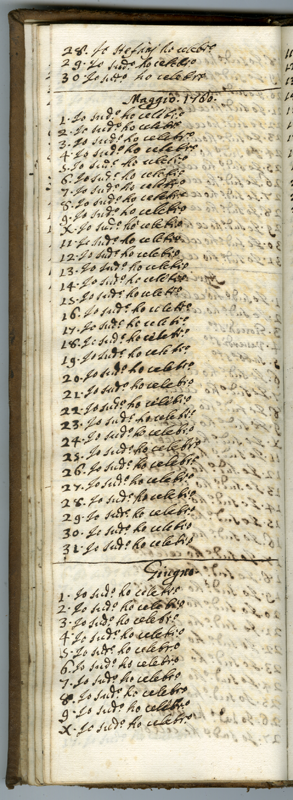 28. Io Stefani ho celebro
29. Io sudº ho celebro
30 Io sudº ho celebro
Maggio. 1766.
1. Io sudº ho celebro
2. Io sudº ho celebro
3. Io sudº ho celebro
4. Io sudº ho celebro
5. Io sudº ho celebro
6. Io sudº ho celebro
7. Io sudº ho celebro
8. Io sudº ho celebro
9. Io sudº ho celebro
X. Io sudº ho celebro
11. Io sudº ho celebro
12. Io sudº ho celebro
13. Io sudº ho celebro
14. Io sudº ho celebro
15. Io sudº ho celebro
16. Io sudº ho celebro
17. Io sudº ho celebro
18. Io sudº ho celebro
19. Io sudº ho celebro
20. Io sudº ho celebro
21. Io sudº ho celebro
22. Io sudº ho celebro
23. Io sudº ho celebro
24. Io sudº ho celebro
25. Io sudº ho celebro
26. Io sudº ho celebro
27. Io sudº ho celebro
28. Io sudº ho celebro
29. Io sudº ho celebro
30. Io sudº ho celebro
31. Io sudº ho celebro
Giugno
1. Io sudº ho celebro
2. Io sudº ho celebro
3. Io sudº ho celebro
4. Io sudº ho celebro
5. Io sudº ho celebro
6. Io sudº ho celebro
7. Io sudº ho celebro
8. Io sudº ho celebro
9. Io sudº ho celebro
X. Io sudº ho celebro